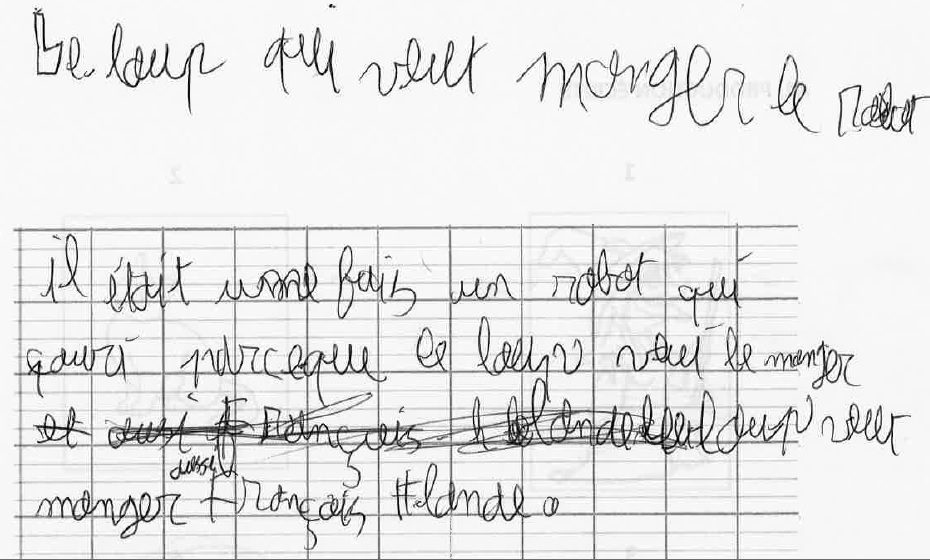 Le loup qui veut manger le robot
il était unne fois un robot qui
qourd parceque le loup veut le manger
et aussi François le loup veut
aussi
manger François Hlande.